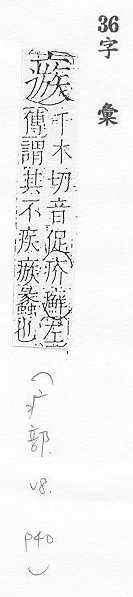 36
字彙
瘯
千木切音促疥癬左
傳謂其不疾瘯蠡也
(疒部. v8. P40)